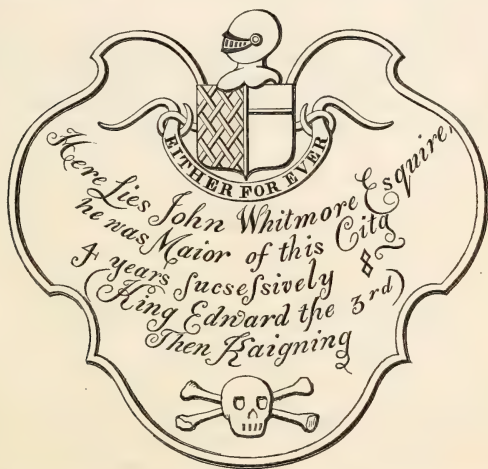 EITHER FOR EVER
Here Lies John Whitmore Esquire,
he was Maior of this City
4 years sucseſsively
(King Edward the 3rd)
Then Raigning